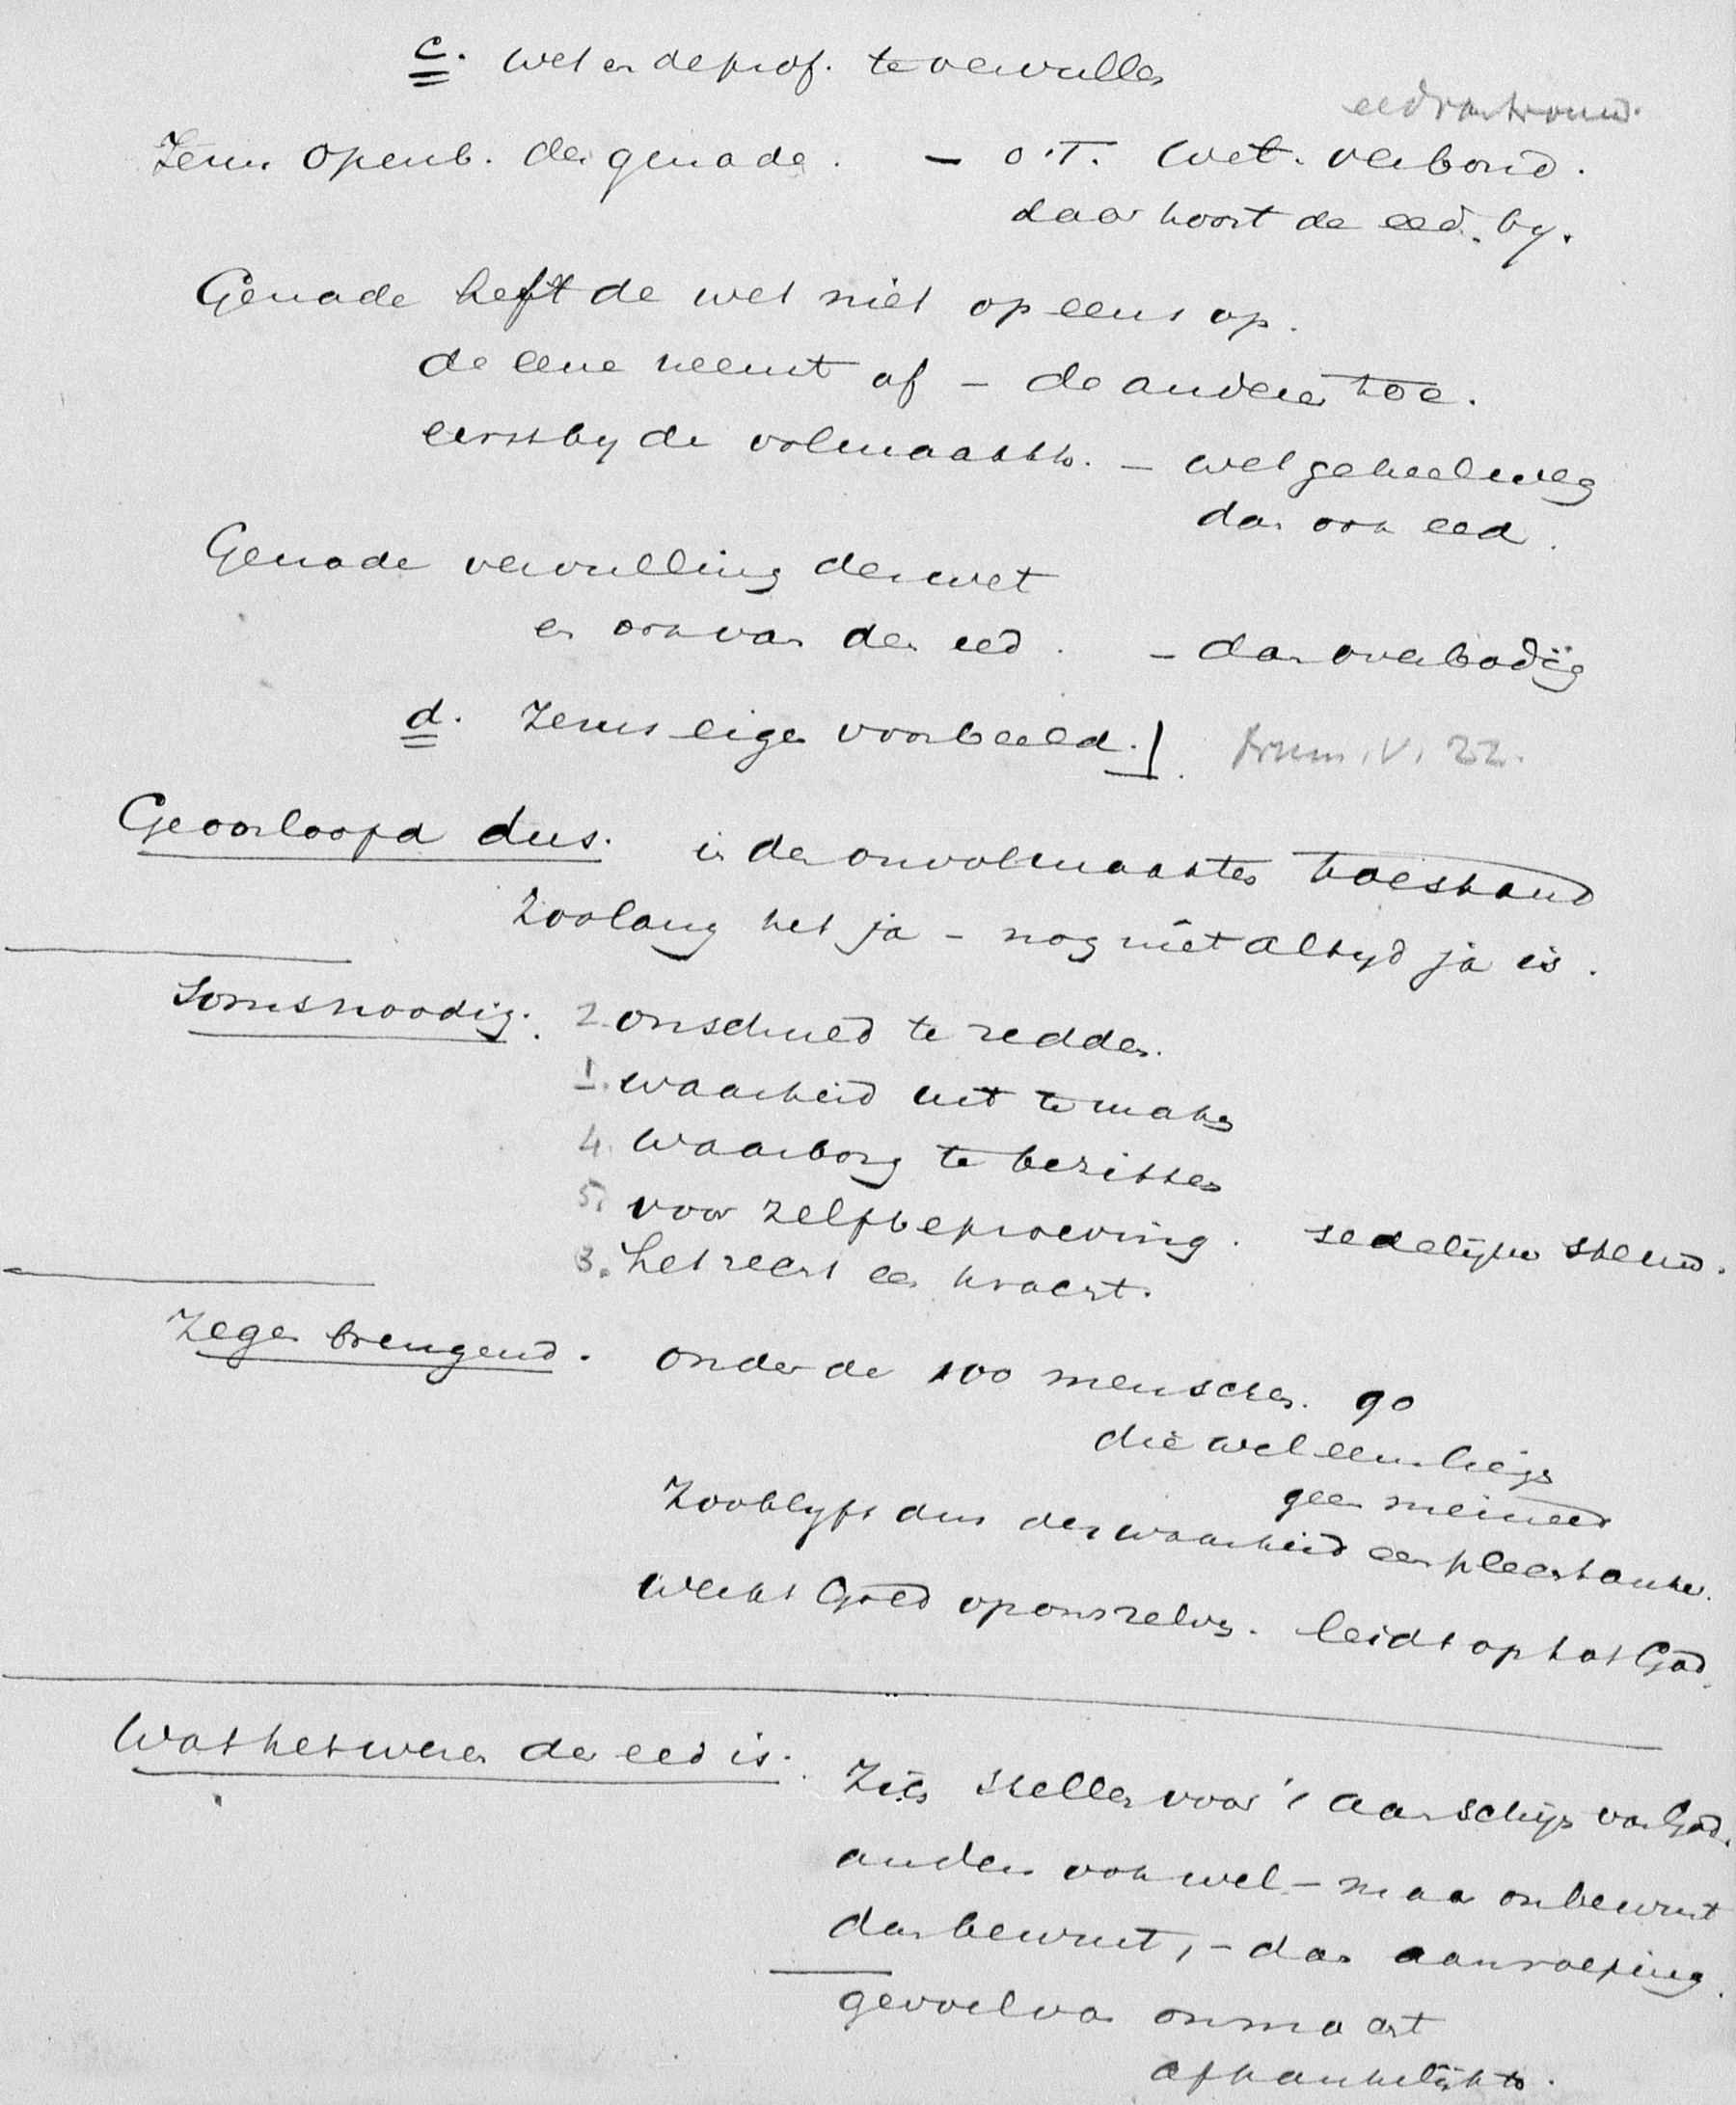 c. wet en de prof. te vervullen
eed van trouw.
Jezus openb. der genade. – O.T. wet. verbond.
daar hoort de eed. by.
Genade heft de wet niet op eens op.
de eene neemt af – de andere toe.
eerst by de volmaakth. – wet geheel weg
dan ook eed.
Genade vervulling der wet
en ook van den eed. – dan overbodig
d. Jezus eigen voorbeeld. !
Num. V. 22.
Geoorloofd dus. in den onvolmaakten toestand
zoolang het ja – nog niet altyd ja is.
Soms noodig. 2. onschuld te redden.
1. waarheid uit te maken
4. waarborg te bezitten
5. voor zelfbeproeving. zedelyke steun.
3. het recht en kracht.
Zegen brengend. onder de 100 menschen. 90
die wel eens liegen
geen meineed
Zoo blyft dus der waarheid een plechtanker.
wekt God op ons zelven. leidt op tot God.
Wat het wezen der eed is. Zich stellen voor 't aanschijn van God.
anders ook wel – maar onbewust
dan bewust, – dan aanroeping.
gevoel van onmacht
afhankelijkh.